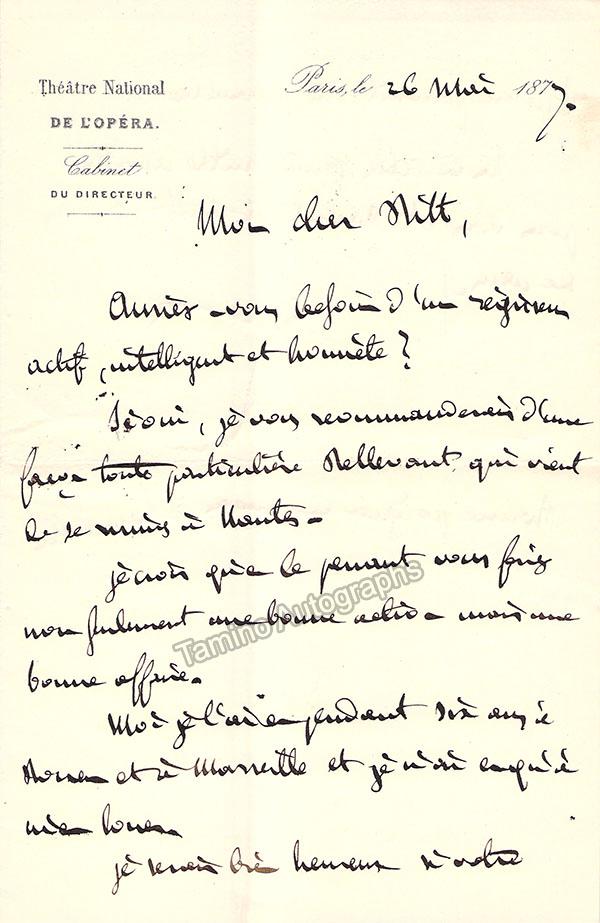 Théâtre National
DE L'OPÉRA.
Cabinet
DU DIRECTEUR
Paris, le 26 Mai 1877.
Mon cher
Auriez-vous besoin d'un régisseur
actif, intelligent et honnête?
Si oui, je vous recommanderais d'une
façon toute particulière qui vient
de se ruiner à Nantes.
Je crois qu'en le prenant vous feriez
non seulement une bonne action mais une
bonne affaire.
Moi je l'ai eu pendant six ans à
Rouen et à Marseille et je n'ai eu qu'à
m'en louer.
Je serais bien heureux si votre
Tamino Autographs